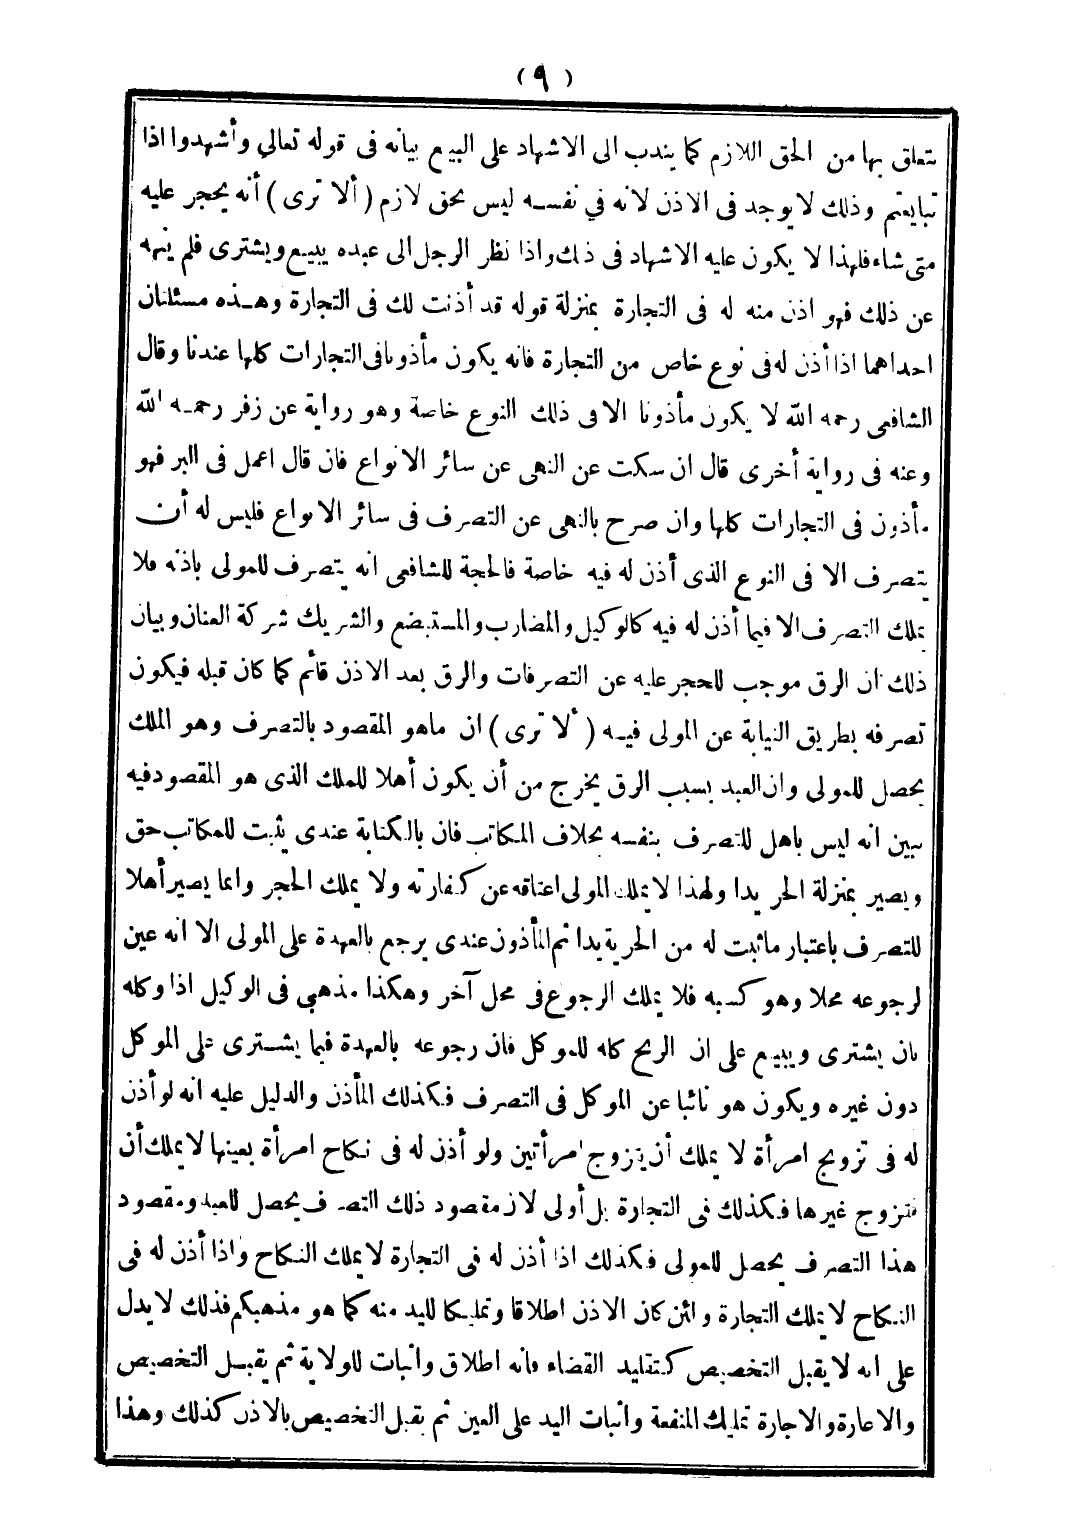 (٩)
يتعلق بها من الحق اللازم كما يندب الى الاشهاد على البيع بيانه فى قوله تعالى وأشهدوا اذا
تبايعتم وذلك لا يوجد فى الاذن لانه في نفسه ليس بحق لازم ( ألا ترى ) أنه يحجر عليه
متى شاء فلهذا لا يكون عليه الاشهاد فى ذلك واذا نظر الرجل الى عبده يبيع ويشترى فلم ينهه
عن ذلك فهو اذن منه له فى التجارة بمنزلة قوله قد أذنت لك فى التجارة وهذه مسئلتان
احداهما اذا أذن له فى نوع خاص من التجارة فانه يكون مأذونا فى التجارات كلها عندنا وقال
الشافعى رحمه الله لا يكون مأذونا الا فى ذلك النوع خاصة وهو رواية عن زفر رحمه الله
وعنه فى رواية أخرى قال ان سكت عن النهى عن سائر الانواع فان قال اعمل فى البر فهو
مأذون فى التجارات كلها وان صرح بالنهى عن التصرف فى سائر الانواع فليس له أن
يتصرف الا فى النوع الذى أذن له فيه خاصة فالحجة للشافعى انه يتصرف للمولى باذنه فلا
يملك التصرف الا فيما أذن له فيه كالوكيل والمضارب والمستبضع والشريك شركة العنان وبيان
ذلك ان الرق موجب للحجر عليه عن التصرفات والرق بعد الاذن قائم كما كان قبله فيكون
تصرفه بطريق النيابة عن المولى فيه ( ألا ترى ) ان ماهو المقصود بالتصرف وهو الملك
يحصل للمولى وان العبد بسبب الرق يخرج من أن يكون أهلا للملك الذى هو المقصود فيه
تبين انه ليس باهل للتصرف بنفسه بخلاف المكاتب فان بالكتابة عندى يثبت للمكاتب حق
ويصير بمنزلة الحر يدا ولهذا لا يملك المولى اعتاقه عن كفارته ولا يملك الحجر وانما يصير أهلا
للتصرف باعتبار ماثبت له من الحرية يدا ثم المأذون عندى يرجع بالعهدة على المولى الا انه عين
لرجوعه محلا وهو كسبه فلا يملك الرجوع فى محل آخر وهكذا مذهبي فى الوكيل اذا وكله
بان يشترى ويبيع على ان الربح كله للموكل فان رجوعه بالعهدة فيما يشترى على الموكل
دون غيره ويكون هو نائبا عن الموكل فى التصرف فكذلك المأذن والدليل عليه انه لو أذن
له فى تزويج امرأة لا يملك أن يتزوج امرأتين ولو أذن له فى نكاح امرأة بعينها لا يملك أن
يتزوج غيرها فكذلك فى التجارة بل أولى لان مقصود ذلك التصرف يحصل للعبد ومقصود
هذا التصرف يحصل للمولى فكذلك اذا أذن له فى التجارة لا يملك النكاح واذا أذن له فى
النكاح لا يملك التجارة ولئن كان الاذن اطلاقا وتمليكا لليد منه كما هو مذهبكم فذلك لا يدل
على انه لا يقبل التخصيص كتقليد القضاء فانه اطلاق واثبات للولاية ثم يقبل التخصيص
والاعارة والاجارة تمليك المنفعة واثبات اليد على العين ثم يقبل التخصيص بالاذن كذلك وهذا